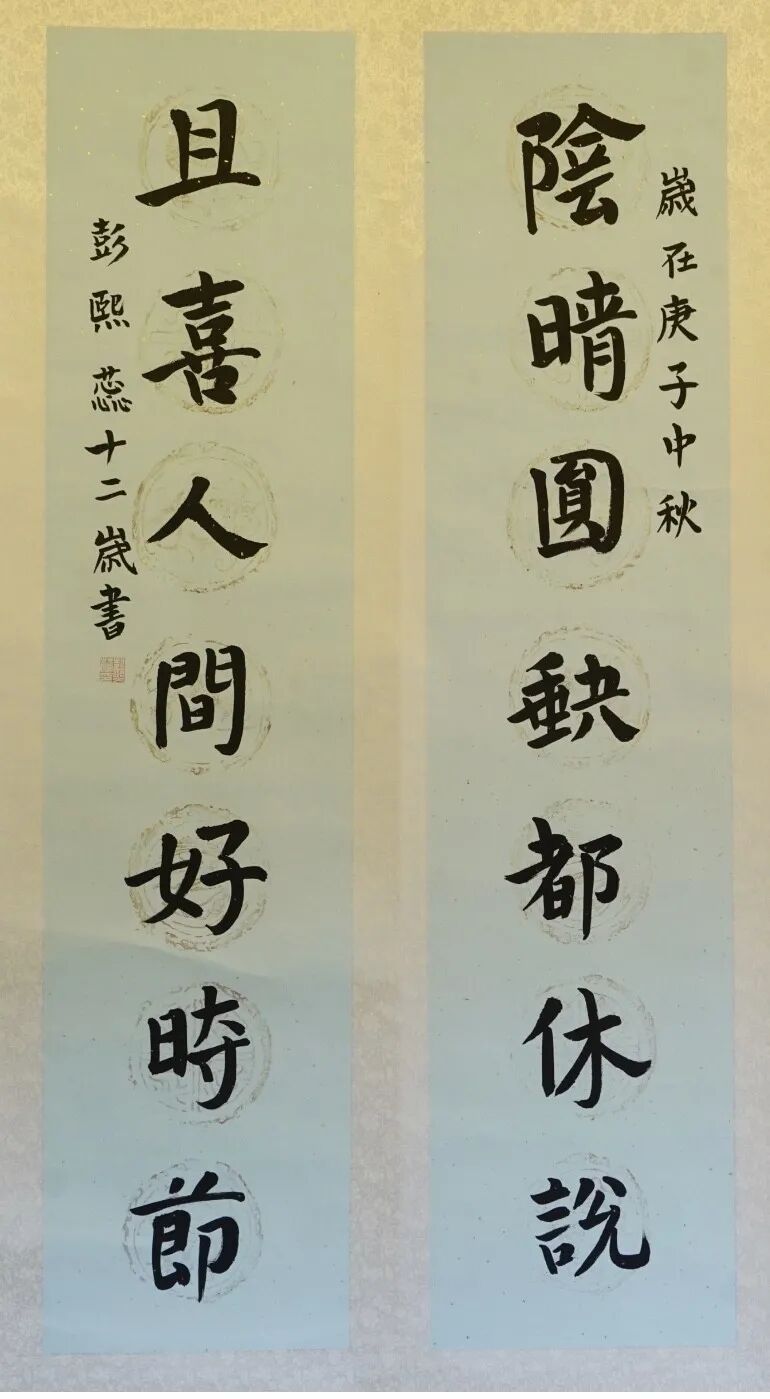 歲在庚子中秋
陰晴圓缺都休說
且喜人間好時節
彭熙蕊十二歲書